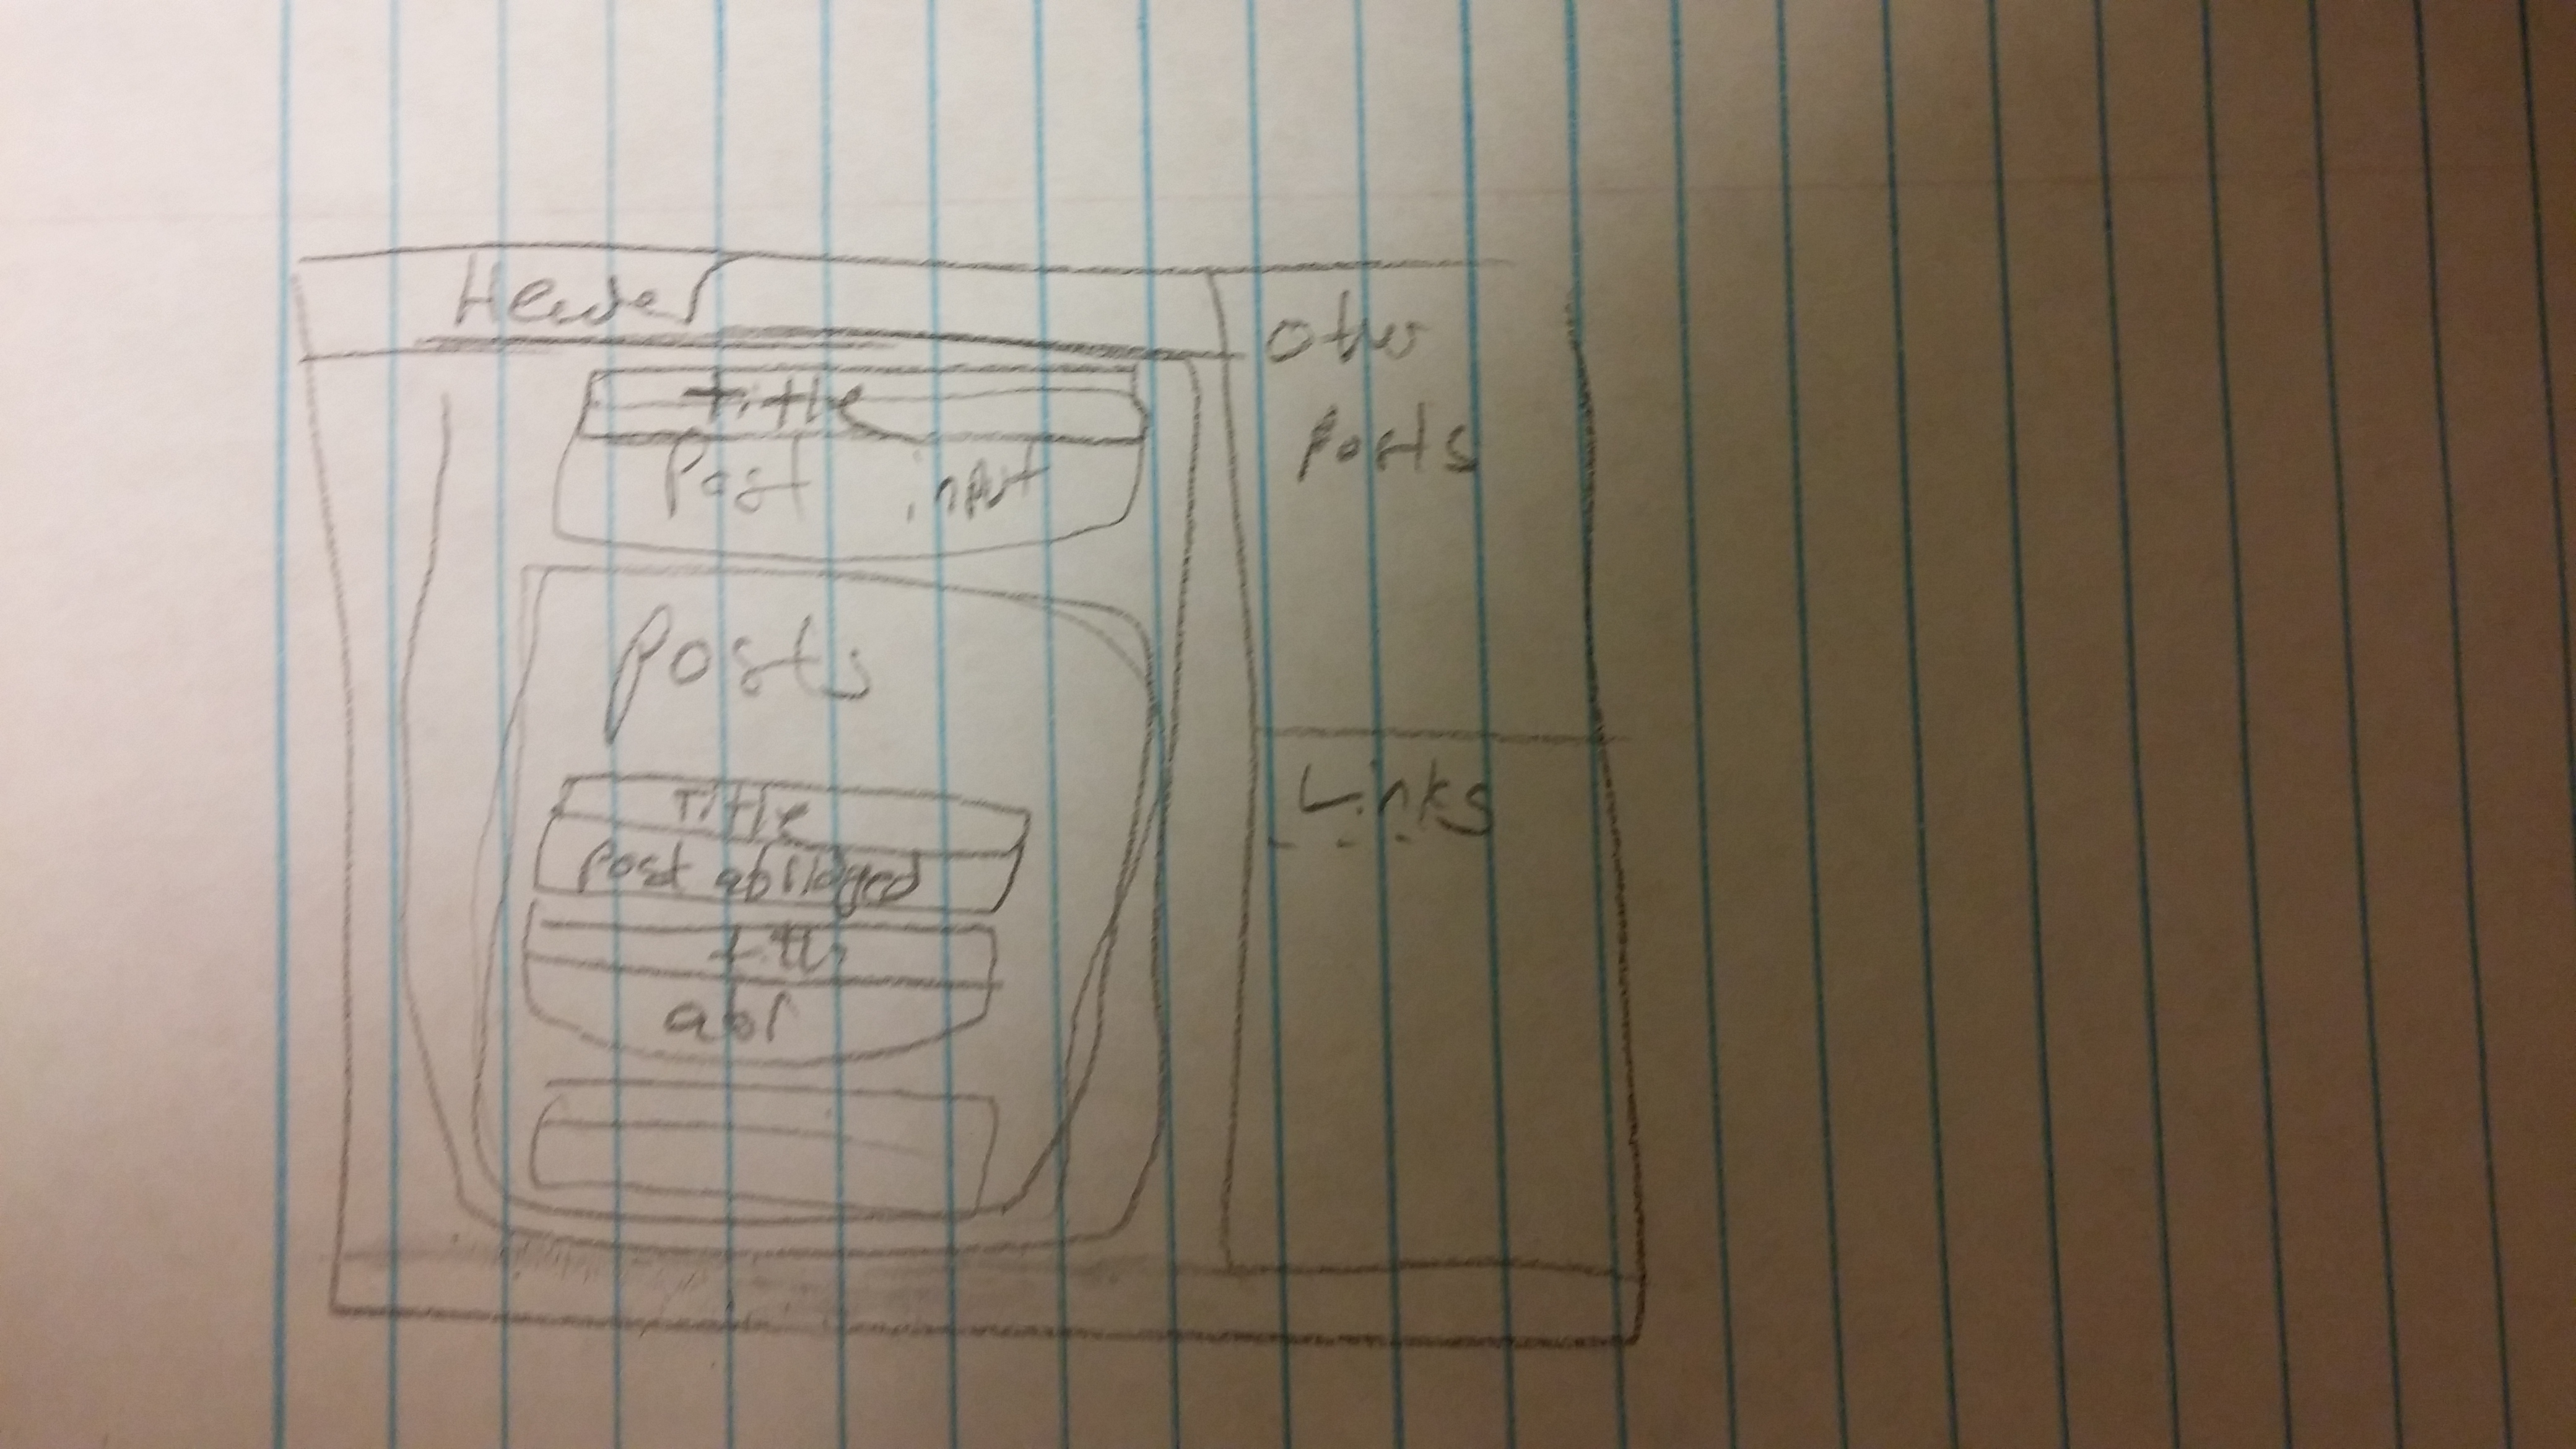 Header
title
Post input
Posts
Title
Post
title
Other
Posts
Links